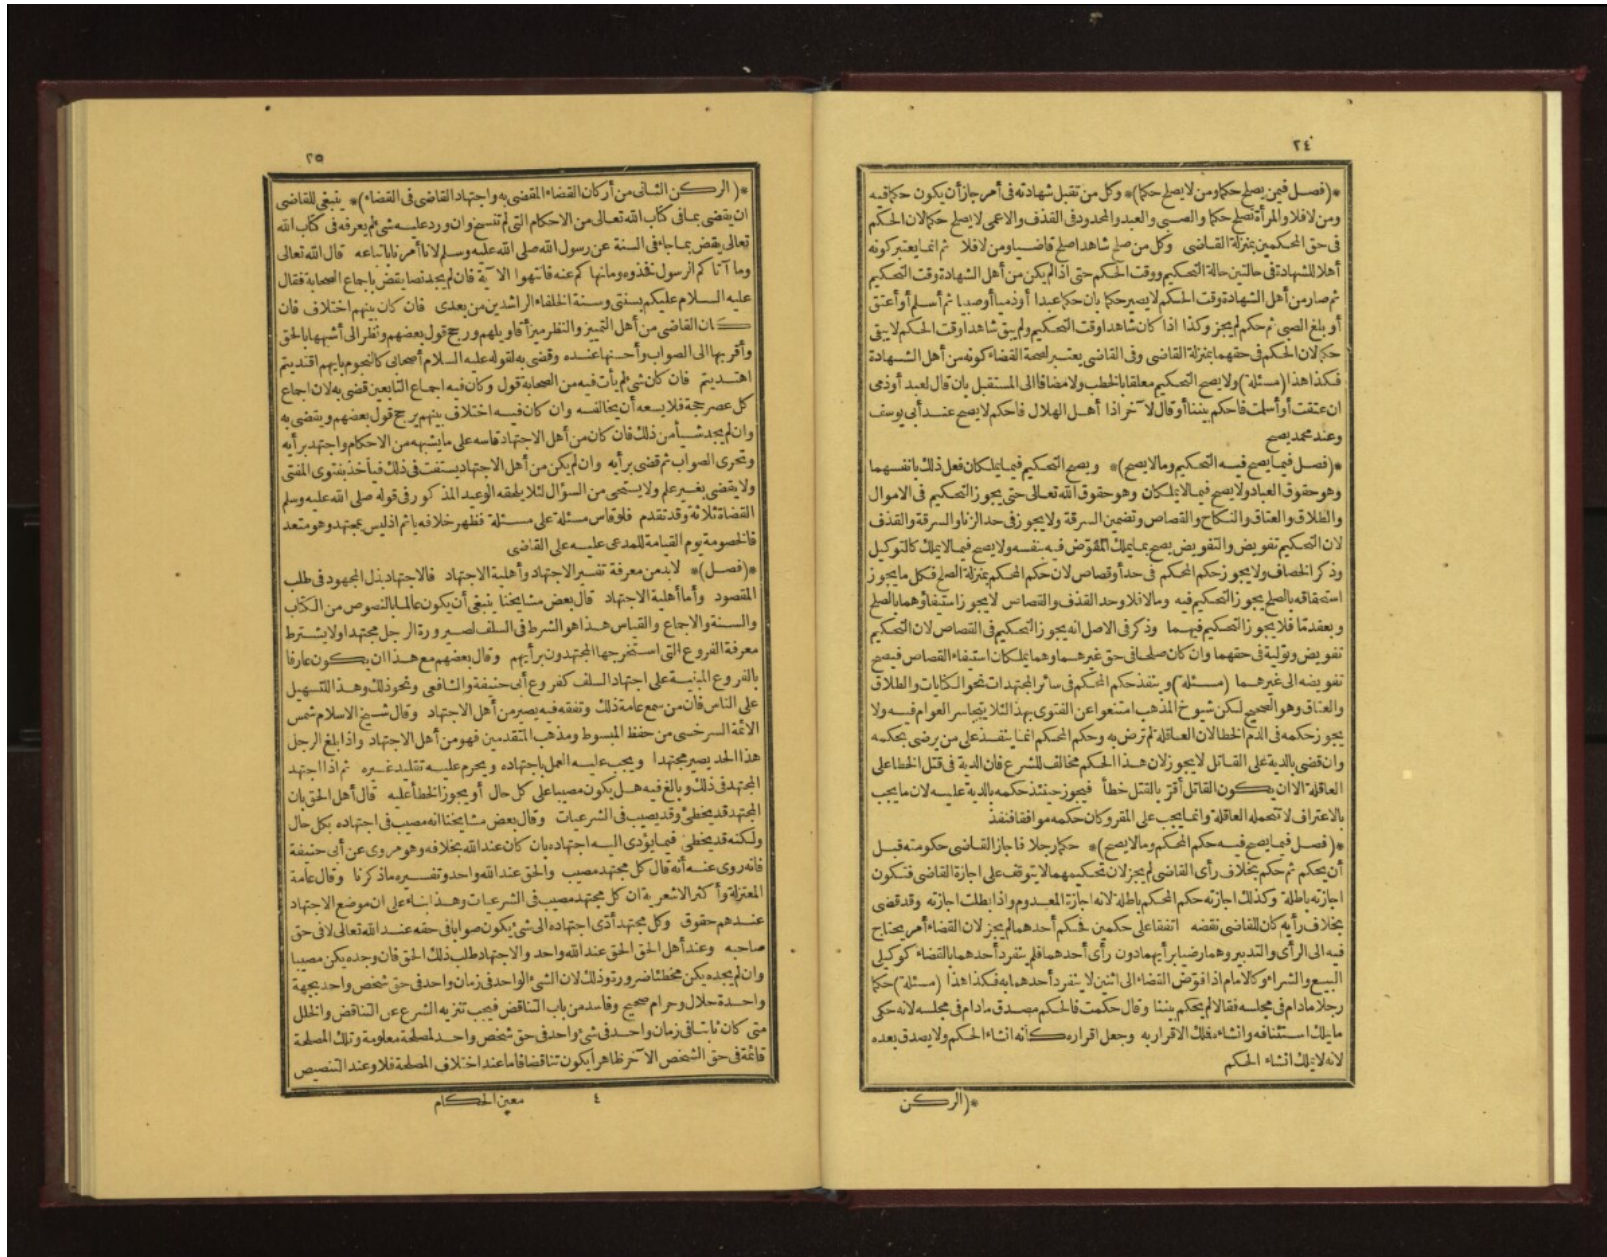 ٢٤
*(فصل فيمن يصلح حكما ومن لا يصلح حكما)* وكل من تقبل شهادته فى أمر جاز أن يكون حكما فيه
ومن لا فلا والمرأة تصلح حكما والصبى والعبد والمحدود فى القذف والاعمى لا يصلح حكما لان الحكم
فى حق المحكمين بمنزلة القاضى وكل من صلح شاهدا صلح قاضيا ومن لا فلا ثم انما يعتبر كونه
أهلا للشهادة فى حالتين حالة التحكيم ووقت الحكم حتى اذا لم يكن من أهل الشهادة وقت التحكيم
ثم صار من أهل الشهادة وقت الحكم لا يصير حكما بان حكما عبدا أو ذميا أو صبيا ثم أسلم أو أعتق
أو بلغ الصبى ثم حكم لم يجز وكذا اذا كان شاهدا وقت التحكيم ولم يبق شاهدا وقت الحكم لا يبقى
حكما لان الحكم فى حقهما بمنزلة القاضى وفى القاضى يعتبر لصحة القضاء كونه من أهل الشهادة
فكذا هذا (مسئلة) ولا يصح التحكيم معلقا بالخطب ولا مضافا الى المستقبل بان قال لعبد أو ذمى
ان عتقت أو أسلمت فاحكم بيننا أو قال لآخر اذا أهل الهلال فاحكم لا يصح عند أبى يوسف
وعند محمد يصح
*(فصل فيما يصح فيه التحكيم وما لا يصح)* ويصح التحكيم فيما يملكان فعل ذلك بانفسهما
وهو حقوق العباد ولا يصح فيما لا يملكان وهو حقوق الله تعالى حتى يجوز التحكيم فى الاموال
والطلاق والعتاق والنكاح والقصاص وتضمين السرقة ولا يجوز فى حد الزنا والسرقة والقذف
لان التحكيم تفويض والتفويض يصح بما يملك المفوّض فيه بنفسه ولا يصح فيما لا يملك كالتوكيل
وذكر الخصاف ولا يجوز حكم المحكم فى حد أو قصاص لان حكم المحكم بمنزلة الصلح فكل ما يجوز
استحقاقه بالصلح يجوز التحكيم فيه وما لا فلا وحد القذف والقصاص لا يجوز استيفاؤهما بالصلح
وبعقد ما فلا يجوز التحكيم فيهما وذكر فى الاصل انه يجوز التحكيم فى القصاص لان التحكيم
تفويض وتولية فى حقهما وان كان صلحا فى حق غيرهما وهما يملكان استيفاء القصاص فيصح
تفويضه الى غيرهما (مسئلة) وينفذ حكم المحكم فى سائر المجتهدات نحو الكنايات والطلاق
والعتاق وهو الصحيح لكن شيوخ المذهب امتنعوا عن الفتوى بهذا لئلا يتجاسر العوام فيه ولا
يجوز حكمه فى الدم الخطا لان العاقلة لم ترض به وحكم المحكم انما ينفذ على من يرضى بحكمه
وان قضى بالدية على القاتل لا يجوز لان هذا الحكم مخالف للشرع فان الدية فى قتل الخطا على
العاقلة الا ان يكون القاتل أقرّ بالقتل خطأ فيجوز حينئذ حكمه بالدية عليه لان ما يجب
بالاعتراف لا تتحمله العاقلة وانما يجب على المقر وكان حكمه موافقا فنفذ
*(فصل فيما يصح فيه حكم المحكم وما لا يصح)* حكما رجلا فاجاز القاضى حكومته قبل
أن يحكم ثم حكم بخلاف رأى القاضى لم يجز لان تحكيمهما لا يتوقف على اجازة القاضى فتكون
اجازته باطلة وكذلك اجازته حكم المحكم باطلة لانه اجازة المعدوم واذا بطلت اجازته وقد قضى
بخلاف رأيه كان للقاضى نقضه اتفقا على حكمين فحكم أحدهما لم يجز لان القضاء أمر يحتاج
فيه الى الرأى والتدبير وهما رضيا برأيهما دون رأى أحدهما فلم ينفرد أحدهما بالقضاء كوكيلى
البيع والشراء وكالامام اذا فوّض القضاء الى اثنين لا ينفرد أحدهما به فكذا هذا (مسئلة) حكما
رجلا ما دام فى مجلسه فقالا لم يحكم بيننا وقال حكمت فالحكم مصدق ما دام فى مجلسه لانه حكى
ما يملك استئنافه وانشاءه فملك الاقرار به وجعل اقراره كأنه انشاء الحكم ولا يصدق بعده
لانه لا يملك انشاء الحكم
*(الركن
٢٥
*(الركن الثانى من أركان القضاء المقضى به واجتهاد القاضى فى القضاء)* ينبغى للقاضى
ان يقضى بما فى كتاب الله تعالى من الاحكام التى لم تنسخ وان ورد عليه شئ لم يعرفه فى كتاب الله
تعالى يقض بما جاء فى السنة عن رسول الله صلى الله عليه وسلم لانا أمرنا باتباعه قال الله تعالى
وما آتاكم الرسول فخذوه وما نهاكم عنه فانتهوا الآية فان لم يجد نصا يقض باجماع الصحابة فقال
عليه السلام عليكم بسنتى وسنة الخلفاء الراشدين من بعدى فان كان بينهم اختلاف فان
كان القاضى من أهل التمييز والنظر ميز أقاويلهم ورجح قول بعضهم ونظر الى أشبهها بالحق
وأقربها الى الصواب وأحسنها عنده وقضى به لقوله عليه السلام أصحابى كالنجوم بايهم اقتديتم
اهتديتم فان كان شئ لم يأت فيه من الصحابة قول وكان فيه اجماع التابعين قضى به لان اجماع
كل عصر حجة فلا يسعه أن يخالفه وان كان فيه اختلاف بينهم يرجح قول بعضهم ويقضى به
وان لم يجد شيأ من ذلك فان كان من أهل الاجتهاد قاسه على ما يشبهه من الاحكام واجتهد برأيه
وتحرى الصواب ثم قضى برأيه وان لم يكن من أهل الاجتهاد يستفت فى ذلك فيأخذ بفتوى المفتى
ولا يقضى بغير علم ولا يستحى من السؤال لئلا يلحقه الوعيد المذكور فى قوله صلى الله عليه وسلم
القضاة ثلاثة وقد تقدم فلو قاس مسئلة على مسئلة فظهر خلافه يأثم اذ ليس بمجتهد وهو متعد
فالخصومة يوم القيامة للمدعى عليه على القاضى
*(فصل)* لا بد من معرفة تفسير الاجتهاد وأهلية الاجتهاد فالاجتهاد بذل المجهود فى طلب
المقصود وأما أهلية الاجتهاد قال بعض مشايخنا ينبغى أن يكون عالما بالنصوص من الكتاب
والسنة والاجماع والقياس هذا هو الشرط فى السلف لصيرورة الرجل مجتهدا ولا يشترط
معرفة الفروع التى استخرجها المجتهدون برأيهم وقال بعضهم مع هذا ان يكون عارفا
بالفروع المبنية على اجتهاد السلف كفروع أبى حنيفة والشافعى ونحو ذلك وهذا لتسهيل
على الناس فان من سمع عامة ذلك وتفقه فيه يصير من أهل الاجتهاد وقال شيخ الاسلام شمس
الائمة السرخسى من حفظ المبسوط ومذهب المتقدمين فهو من أهل الاجتهاد واذا بلغ الرجل
هذا الحد يصير مجتهدا ويجب عليه العمل باجتهاده ويحرم عليه تقليد غيره ثم اذا اجتهد
المجتهد فى ذلك وبالغ فيه هل يكون مصيبا على كل حال أو يجوز الخطأ عليه قال أهل الحق بان
المجتهد قد يخطئ وقد يصيب فى الشرعيات وقال بعض مشايخنا انه مصيب فى اجتهاده بكل حال
ولكنه قد يخطئ فيما يؤدى اليه اجتهاده بان كان عند الله بخلافه وهو مروى عن أبى حنيفة
فانه روى عنه أنه قال كل مجتهد مصيب والحق عند الله واحد وتفسيره ما ذكرنا وقال عامة
المعتزلة وأكثر الاشعرية ان كل مجتهد مصيب فى الشرعيات وهذا بناء على ان موضع الاجتهاد
عندهم حقوق وكل مجتهد أدّى اجتهاده الى شئ يكون صوابا فى حقه عند الله تعالى لا فى حق
صاحبه وعند أهل الحق الحق عند الله واحد والاجتهاد طلب ذلك الحق فان وجده يكن مصيبا
وان لم يجده يكن مخطئا ضرورة وذلك لان الشئ الواحد فى زمان واحد فى حق شخص واحد بجهة
واحدة حلال وحرام صحيح وفاسد من باب التناقض فيجب تنزيه الشرع عن التناقض والخلل
متى كان ثابتا فى زمان واحد فى شئ واحد فى حق شخص واحد لمصلحة معلومة وتلك المصلحة
قائمة فى حق الشخص الآخر ظاهرا يكون تناقضا فاما عند اختلاف المصلحة فلا وعند التنصيص
٤ معين الحكام